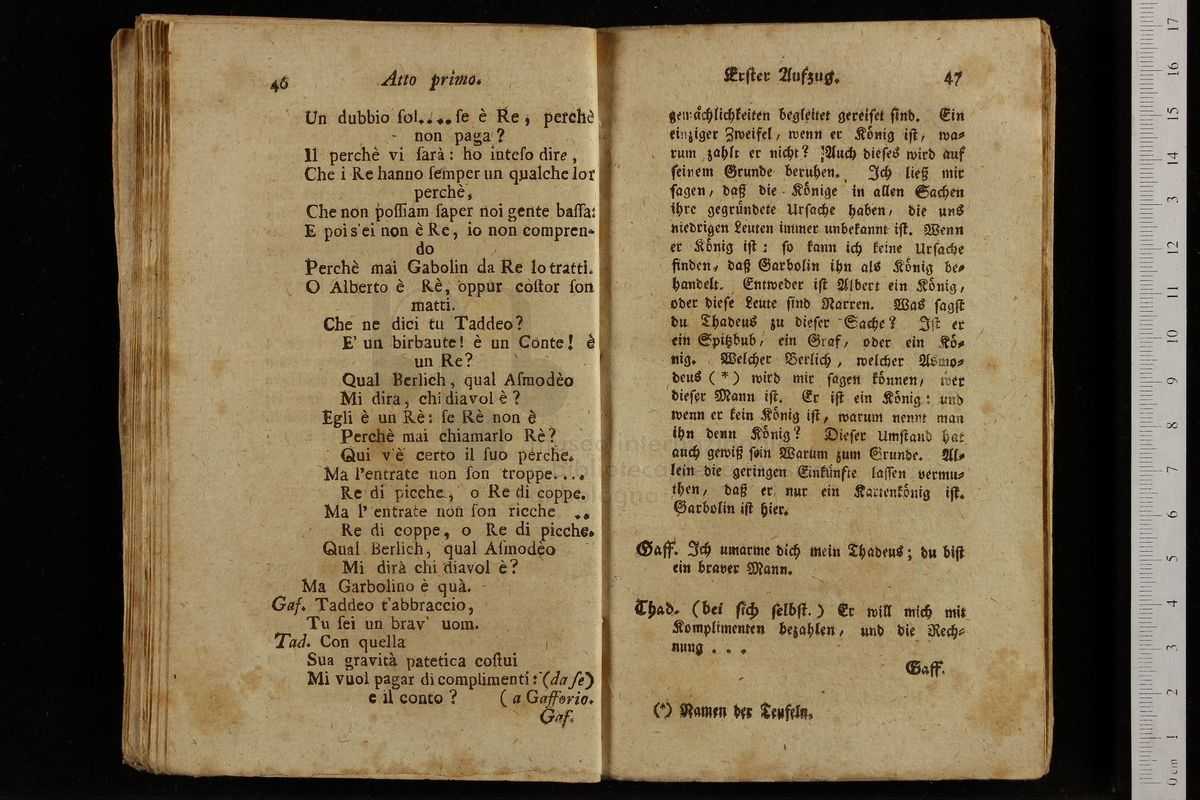 46 Atto primo.
Un dubbio ſol.... ſe è Re, perchè
non paga?
Il perchè vi ſarà: ho inteſo dire,
Che i Re hanno ſemper un qualche lor
perchè,
Che non poſſiam ſaper noi gente baſſa:
E poi s'ei non è Re, io non compren-
do
Perchè mai Gabolin da Re lo tratti.
O Alberto è Rè, oppur coſtor ſon
matti.
Che ne dici tu Taddeo?
E' un birbaute! è un Conte! è
un Re?
Qual Berlich, qual Aſmodèo
Mi dira, chi diavol è?
Egli è un Rè: ſe Rè non è
Perchè mai chiamarlo Rè?
Qui v'è certo il ſuo perche.
Ma l'entrate non ſon troppe....
Re di picche, o Re di coppe.
Ma l' entrate non ſon ricche ..
Re di coppe, o Re di picche.
Qual Berlich, qual Aſmodèo
Mi dirà chi diavol è?
Ma Garbolino è quà.
Gaf. Taddeo t'abbraccio,
Tu ſei un brav' uom.
Tad. Con quella
Sua gravità patetica coſtui
Mi vuol pagar di complimenti: (da ſe)
e il conto? (a Gafforio.
Gaf.
Erſter Aufzug. 47
gemächlichkeiten begleitet gereiſet ſind. Ein
einziger Zweifel, wenn er König iſt, wa-
rum zahlt er nicht? Auch dieſes wird auf
ſeinem Grunde beruhen. Ich ließ mir
ſagen, daß die Könige in allen Sachen
ihre gegründete Urſache haben, die uns
niedrigen Leuten immer unbekannt iſt. Wenn
er König iſt: ſo kann ich keine Urſache
finden, daß Garbolin ihn als König be-
handelt. Entweder iſt Albert ein König,
oder dieſe Leute ſind Narren. Was ſagſt
du Thadeus zu dieſer Sache? Iſt er
ein Spitzbub, ein Graf, oder ein Kö-
nig. Welcher Berlich, welcher Asmo-
deus (*) wird mir ſagen können, wer
dieſer Mann iſt. Er iſt ein König: und
wenn er kein König iſt, warum nennt man
ihn denn König? Dieſer Umſtand hat
auch gewiß ſein Warum zum Grunde. Al-
lein die geringen Einkünfte laſſen vermu-
then, daß er nur ein Kartenkönig iſt.
Garbolin iſt hier.
Gaff. Ich umarme dich mein Thadeus; du biſt
ein braver Mann.
Thad. (bei ſich ſelbſt.) Er will mich mit
Komplimenten bezahlen, und die Rech-
nung . . .
Gaff.
(*) Namen der Teufeln.
0 cm 1 2 3 4 5 6 7 8 9 10 11 12 13 14 15 16 17